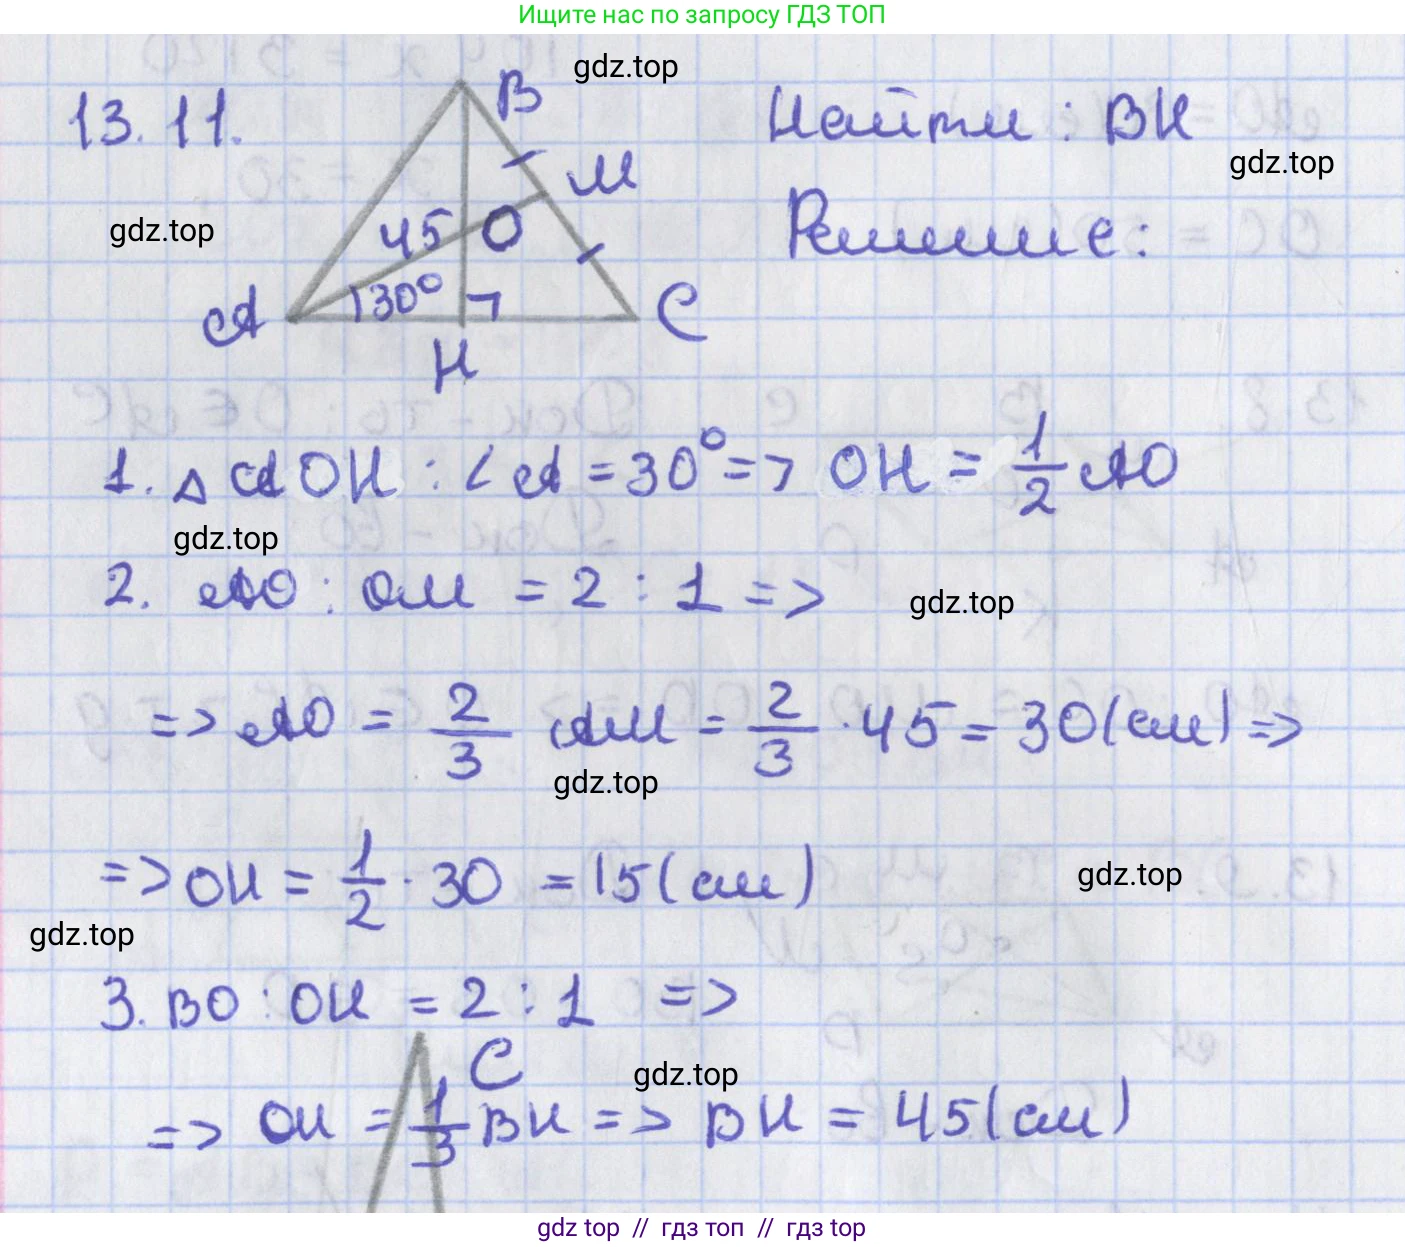 Ищите нас по запросу ГДЗ ТОП
gdz.top
13.11.
B
Найти : BH
gdz.top
M
gdz.top
45
O
Решение:
A
30°
C
H
1. △ AOH : ∠A = 30° => OH = 1/2 AO
gdz.top
2. AO : OM = 2 : 1 =>
gdz.top
=> AO = 2/3 AM = 2/3 · 45 = 30 (см) =>
gdz.top
=> OH = 1/2 · 30 = 15 (см)
gdz.top
gdz.top
3. BO : OH = 2 : 1 =>
C
gdz.top
=> OH = 1/3 BH => BH = 45 (см)
gdz top // гдз топ // гдз top